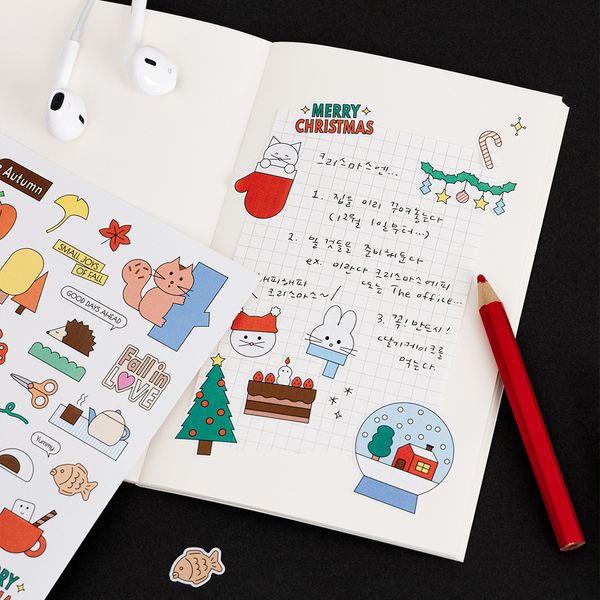 MERRY
CHRISTMAS
크리스마스엔...
1. 집을 미리 꾸며놓는다
(12월 1일부터...)
2. 볼 것들을 준비해둔다
ex. 미란다 크리스마스에피
또는 The office...
해피해피
크리스마스~/
3. 꼭! 반드시!
딸기케이크를
먹는다.
Autumn
SMALL JOYS
OF FALL
GOOD DAYS AHEAD
Fall in
LOVE
Yummy